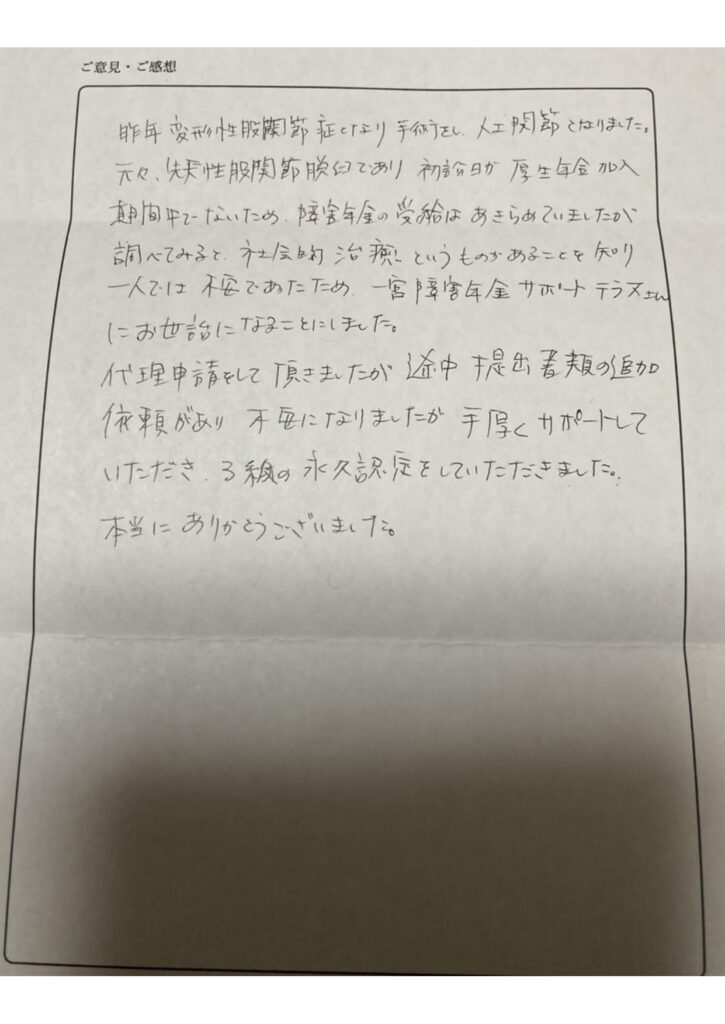 ご意見・ご感想
昨年変形性股関節症となり手術をし、人工関節となりました。
元々、先天性股関節脱臼であり 初診日が 厚生年金加入
期間中でないため、障害年金の受給は あきらめていましたが
調べてみると、社会的治癒というものがあることを知り
一人では 不安であたため、一宮障害年金サポートテラスさん
にお世話になることにしました。
代理申請をして頂きましたが 途中 提出書類の追加
依頼があり 不安になりましたが 手厚くサポートして
いただき、3級の永久認定をしていただきました。
本当に ありがとうございました。